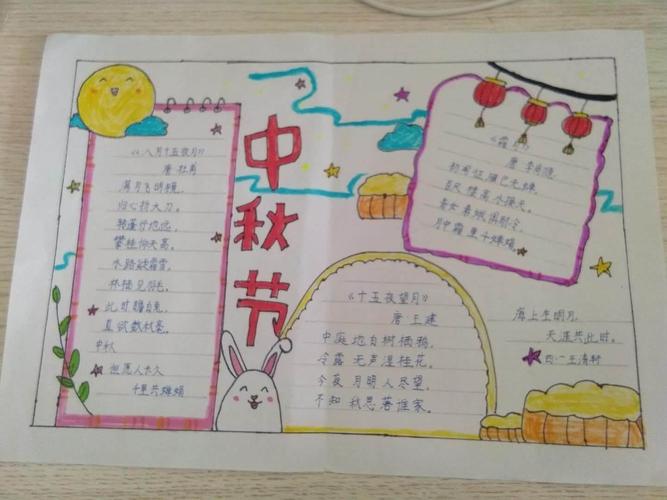 中秋节
《八月十五夜月》
唐 杜甫
满月飞明镜,
归心折大刀。
转蓬行地远,
攀桂仰天高。
水路疑霜雪,
林栖见羽毛。
此时瞻白兔,
直欲数秋毫。
中秋
但愿人长久
千里共婵娟
《十五夜望月》
唐 王建
中庭地白树栖鸦,
冷露无声湿桂花。
今夜月明人尽望,
不知秋思落谁家。
《霜月》
唐 李商隐
初闻征雁已无蝉,
百尺楼高水接天。
青女素娥俱耐冷,
月中霜里斗婵娟。
海上生明月
天涯共此时。
四一王清